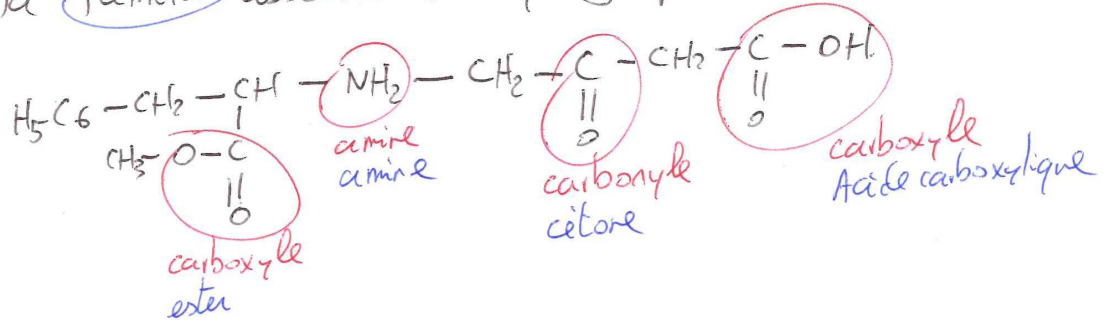 H5C6 – CH2 – CH – NH2 – CH2 – C – CH2 – C – OH
CH3 – O – C
O
O
O
amine
amine
carbonyle
cétone
carboxyle
Acide carboxylique
carboxyle
ester